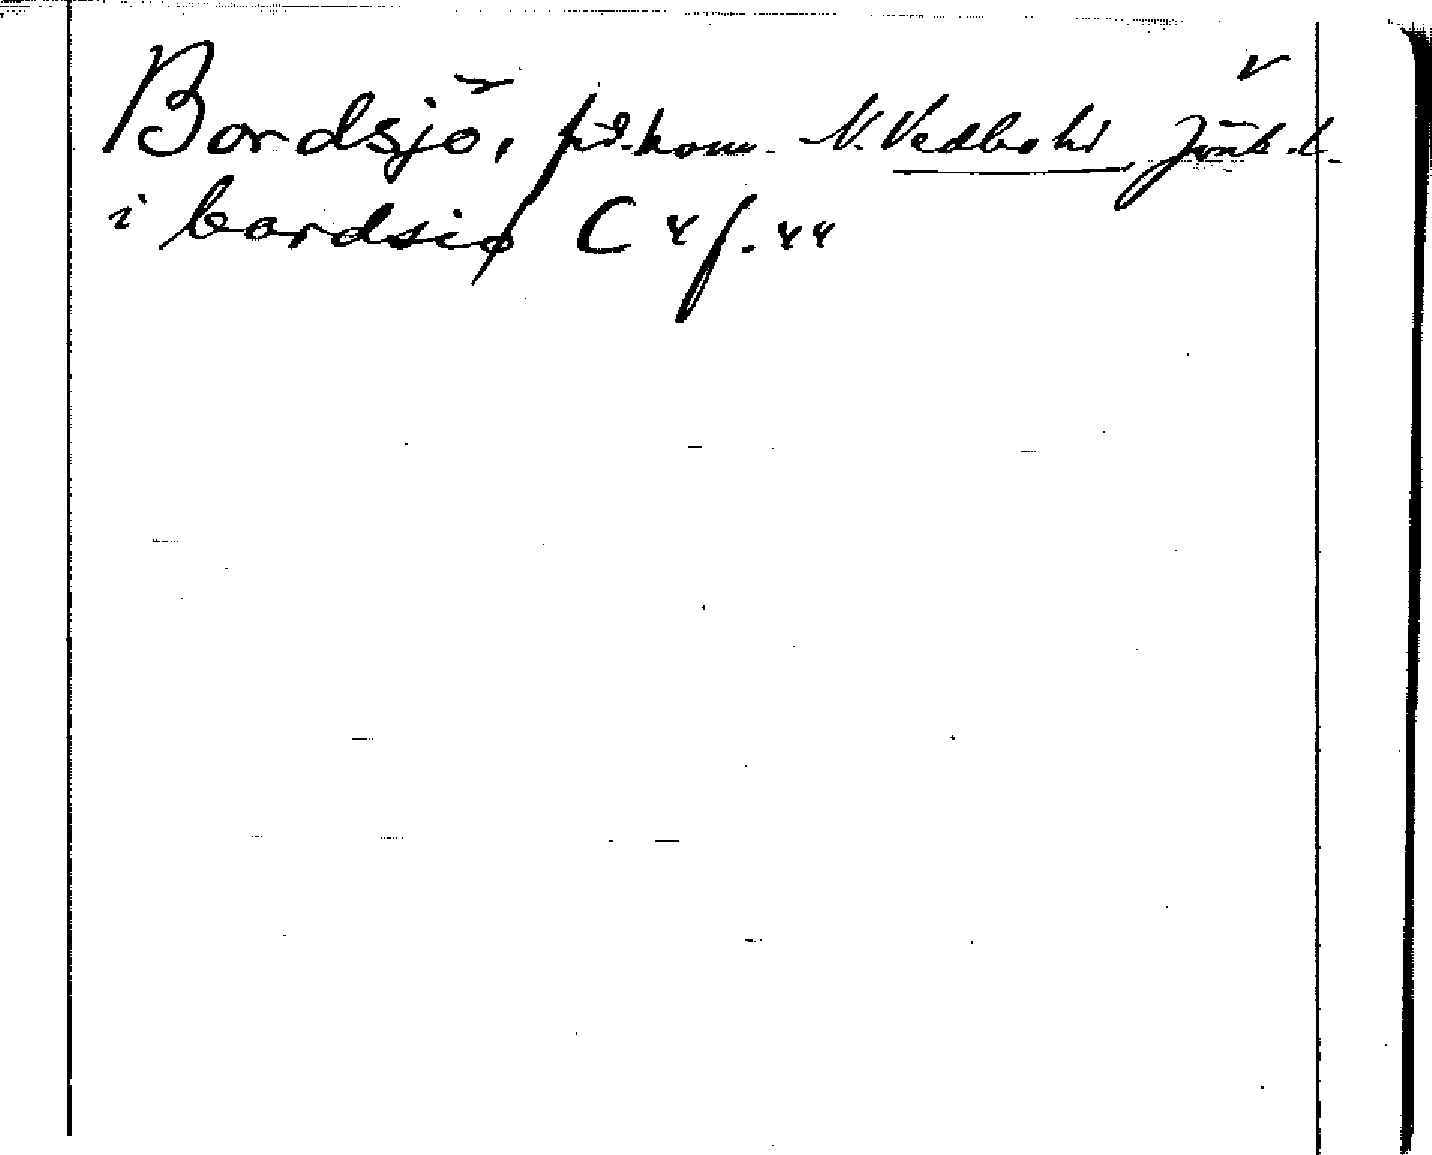 Bordsjö, fid.kom. N. Vedbo hd, Jönk. l.
i bordsiø C 4 f. 44